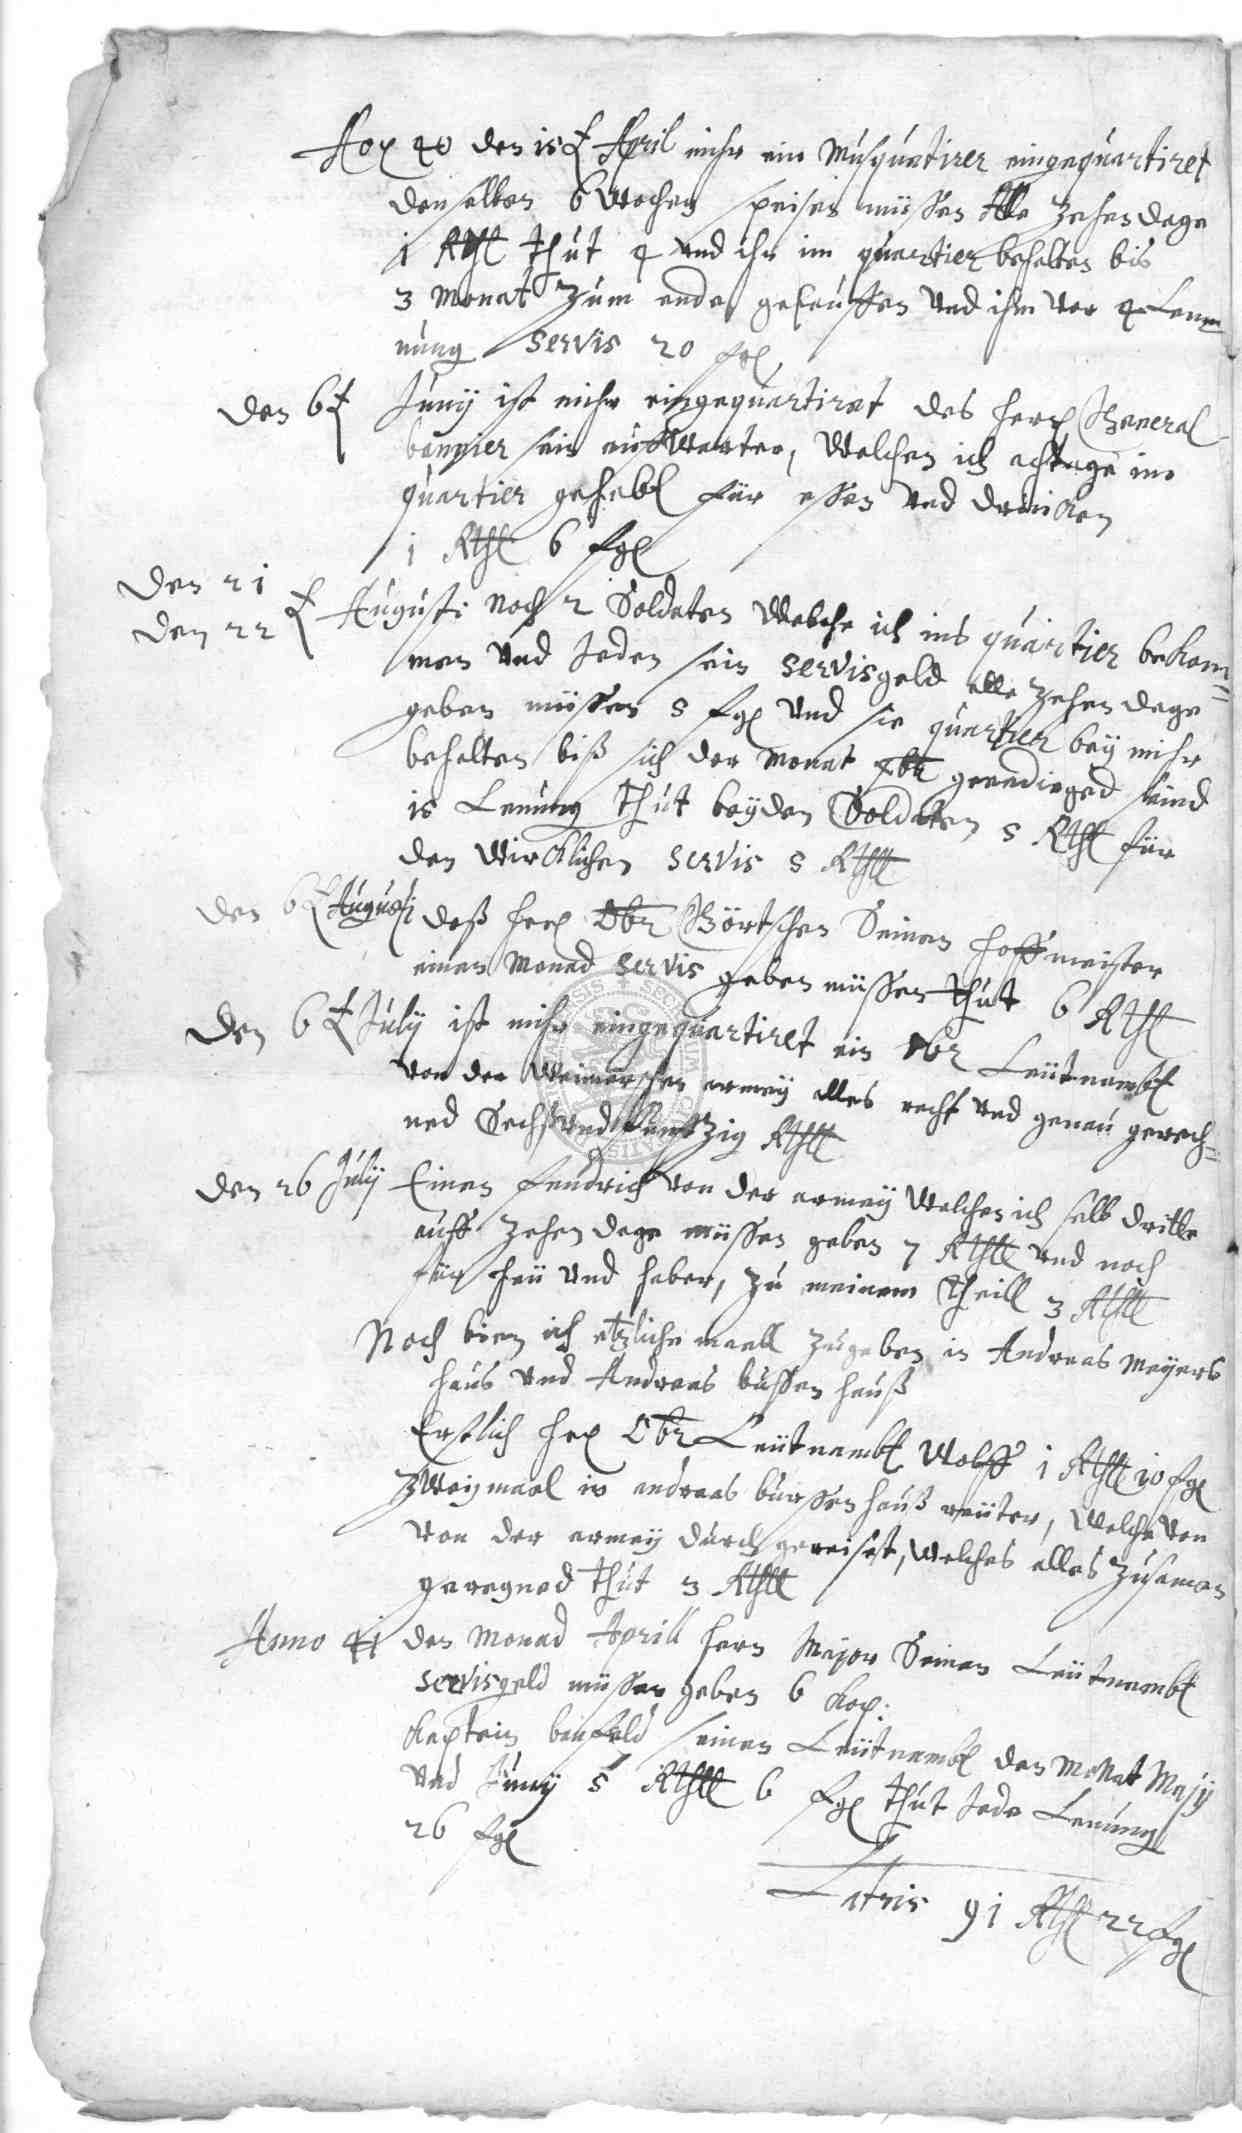 Ao 40 den 15 April mihr ein Musquetirer eingequartiret
denselben 6 Wochen speisen müssen Alle zehen dage
1 Rthl thut 4 und ihn im quartier behalten bis
3 Monat zum ende geleuffen und ihm vor 4 Lenn
nung servis 20 fgl
den 6 Juny ist mihr eingequartiret des herrn General
bannier sein auffwarter, Welchen ich achtage im
quartier gehabt für essen und drincken
1 Rthl 6 fgl
den 21
den 22 Augusti noch 2 Soldaten Welche ich ins quartier bekom=
men und Jeden sein servisgeld alle zehen dage
geben müssen 5 fgl und sie quartier bey mihr
behalten biß sich der Monat geendieged seind
15 Lenung thut beyden Soldaten 5 Rthl für
den Wircklichen servis 5 Rthll
den 6 Augusti deß herr Obr Görtschen Seinen hoffmeister
einen Monad servis geben müssen thut 6 Rthl
den 6 July ist mihr eingequartiret ein Obr Leütnambt
von der Weimerschen armey alles recht und genau gerech=
ned Sechs und funffzig Rthll
den 26 July Einen fendrich von der armey Welchen ich selb dritte
auff zehen dage müssen geben 7 Rthll und noch
für heü und haber, zu meinem theill 3 Rthll
Noch bien ich etzliche maell zugeben in Andreas Meyers
haus und Andreas bussen hauß
Erstlich her Obr Leütnambt Wolff 1 Rthll 10 fgl
zweymael in andreas bussen hauß reüter, Welche von
von der armey durch gereiset, welches alles zusamen
geregned thut 3 Rthll
Anno 41 den Monad Aprill hern Major Seinen Leütnambt
servisgeld müssen geben 6 Kop:
Kaptein seinen Leütnambt den Monat Majy
und Juny 5 Rthll 6 fgl thut Jede Lenung
26 fgl
Latris 91 Rthl 22 fgl